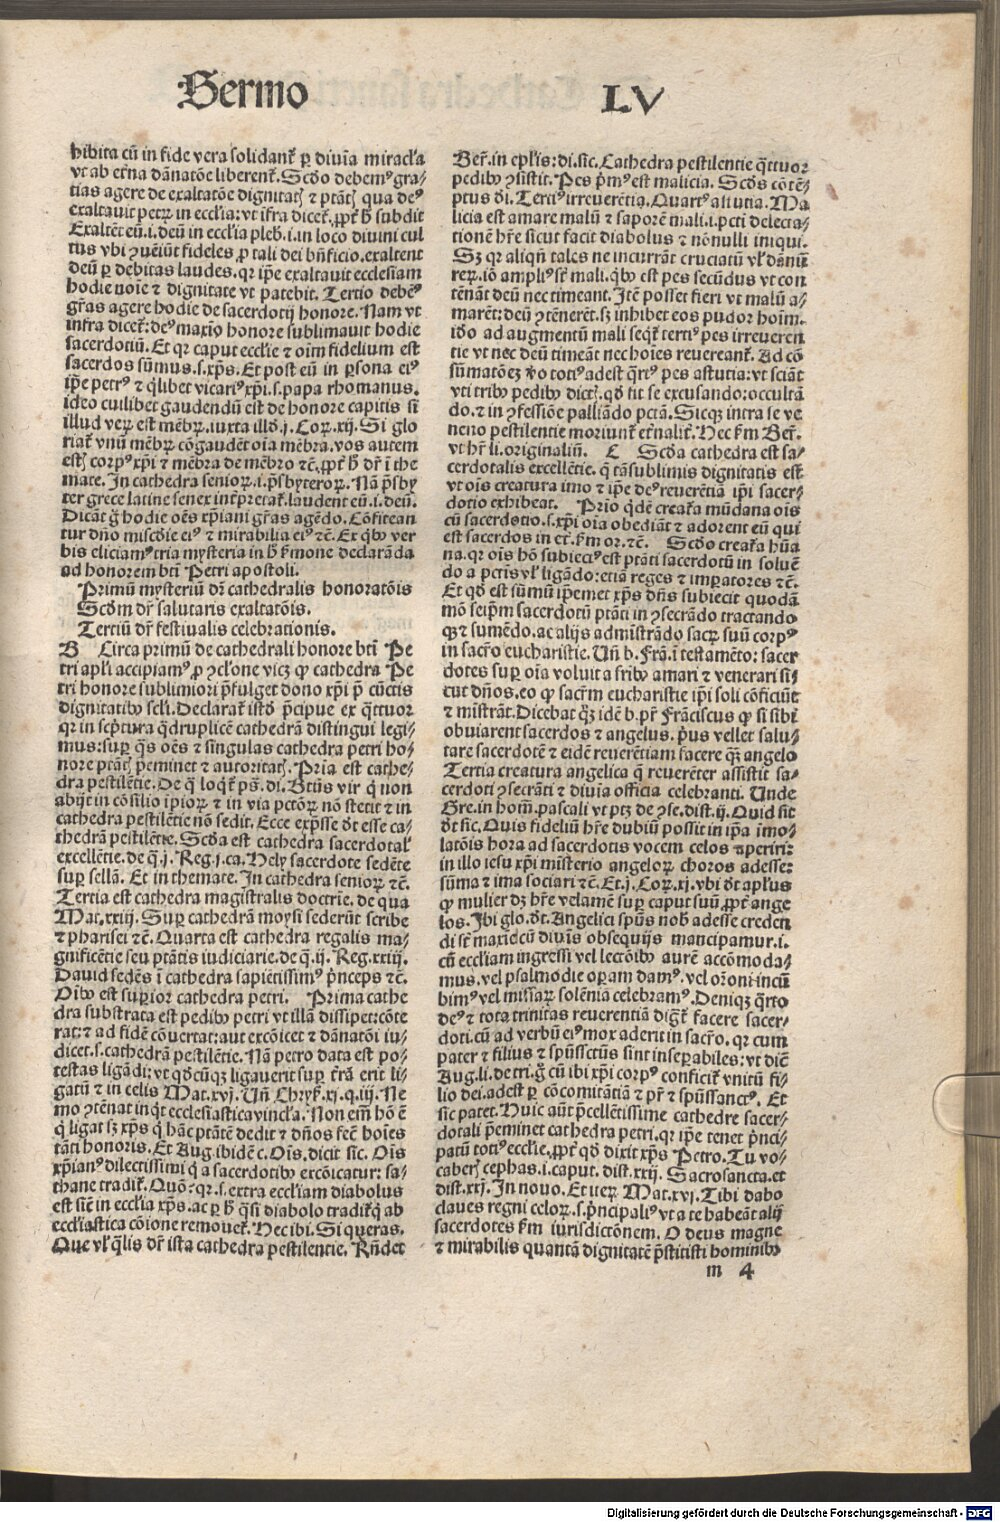 Sermo LV
hibita cū in fide vera solidant᷑ ꝑ diuīa miracl'a
vt ab et'na dānatōe liberent᷑. Scd'o debem⁹ gra-
tias agere de exaltatōe dignitatꝭ ⁊ ptātꝭ qua de⁹
exaltauit petrꝝ in eccl'ia: vt īfra dicet᷑, ꝓpt᷑ hͦ subdit
Exaltēt eū.i.deū in eccl'ia pleb.i.in loco diuini cul
tus vbi ꝯueiūt fideles ꝓ tali dei bn̄ficio. exaltent
deū ꝑ debitas laudes. qꝛ ip̄e exaltauit ecclesiam
hodie noīe ⁊ dignitate vt patebit. Tertio debē⁹
gr̄as agere hodie de sacerdotij honore. Nam vt
infra dicet᷑: de⁹ maxīo honore sublimauit hodie
sacerdotiū. Et qꝛ caput eccl'ie ⁊ oīm fidelium est
sacerdos sūmus.s.xp̄s. Et post eū in ꝑsona ei⁹
ip̄e petr⁹ ⁊ q̄libet vicari⁹ xp̄i.s.papa rhomanus.
ideo cuilibet gaudendū est de honore capitis si
illud verꝝ est mēbrꝝ. iuxta illd'.j.Coꝝ.xij. Si glo
riat᷑ vnū mēbrꝝ cōgaudēt oīa mēbra. vos autem
estꝭ corp⁹ xp̄i ⁊ mēbra de mēbro ⁊c̄. ꝓpt᷑ hͦ dr̄ i the
mate. In cathedra senioꝝ.i.p̄sbyteroꝝ. Nā p̄sby
ter grece latine senex int'pretat᷑. laudent eū.i.deū.
Dicāt g̊ hodie oēs xp̄iani gr̄as agēdo. Cōfitean
tur dn̄o miscd'ie ei⁹ ⁊ mirabilia ei⁹ ⁊c̄. Ex qͥbꝰ ver
bis eliciam⁹ tria mysteria in hͦ ẜmone declarāda
ad honorem bt̄i Petri apostoli.
Primū mysteriū dr̄ cathedralis honoratōis
Scd'm dr̄ salutaris exaltatōis.
Tertiū dr̄ festiualis celebrationis.
B Circa primū de cathedrali honore bt̄i Pe
tri apl'i accipiam⁹ ꝓ ꝯcl'one vicꝫ ꝙ cathedra Pe
tri honore sublimiori p̄fulget dono xp̄i p̄ cūctis
dignitatibꝰ scl'i. Declarat᷑ istd' p̄cipue ex q̄ttuor
qꝛ in sc'ptura q̄druplicē cathedrā distingui legi-
mus: suꝑ q̄s oēs ⁊ singulas cathedra petri ho-
nore ptātꝭ p̄eminet ⁊ autoritatꝭ. Pria est cathe-
dra pestilētie. De q̄ loqͥt᷑ ps̄.di. Bt̄us vir qͥ non
abijt in cōsilio īpioꝝ ⁊ in via pctōꝝ nō stetit ⁊ in
cathedra pestilētie nō sedit. Ecce exp̄sse dt̄ esse ca-
thedrā pestilētie. Scd'a est cathedra sacerdotal'
excellētie. de q̄.j.Reg.j.ca. Hely sacerdote sedēte
suꝑ sellā. Et in themate. In cathedra senioꝝ ⁊c̄.
Tertia est cathedra magistralis doctrie. de qua
Mat.xxiij. Suꝑ cathedrā moysi sederūt scribe
⁊ pharisei ⁊c̄. Quarta est cathedra regalis ma-
gnificētie seu ptātis iudiciarie. de q̄.ij.Reg.xxiij.
Dauid sedēs ī cathedra sapiētissim⁹ p̄nceps ⁊c̄.
Oībꝰ est suꝑior cathedra petri. Prima cathe
dra substrata est pedibꝰ petri vt illā dissipet: cōte
rat: ⁊ ad fidē cōuertat: aut excōicet ⁊ dānatōi iu-
dicet.s.cathedrā pestilētie. Nā petro data est po-
testas ligādi: vt qd'cūqꝫ ligauerit suꝑ t'rā erit li-
gatū ⁊ in celis Mat.xvj. Vn̄ Chryß.xj.q.iij. Ne
mo ꝯtēnat inq̄t ecclesiastica vincl'a. Non em̄ hō ē
qͥ ligat sꝫ xp̄s qͥ hāc ptātē dedit ⁊ dn̄os fec̄ hoīes
tāti honoris. Et Aug.ibidē c. Ois. dicit sic. Ois
xp̄ian⁹ dilectissimi qͥ a sacerdotibꝰ excōicatur: sa-
thane tradit᷑. Quō: qꝛ.s.extra eccl'iam diabolus
est sic̄ in eccl'ia xp̄s. ac ꝑ hͦ q̄si diabolo tradit᷑ qͥ ab
eccl'iastica cōione remouet᷑. Hec ibi. Si queras.
Que vl' q̄lis dr̄ ista cathedra pestilentie. Rn̄det
Ber̄.in epl'is: di.sic. Cathedra pestilentie q̄ttuor
pedibꝰ ꝯsistit. Pes p̄m⁹ est malicia. Scd's cōtē-
ptus d'i. Terti⁹ irreuerētia. Quart⁹ astutia. Ma
licia est amare malū ⁊ saporē mali.i.pcti delecta-
tionē hr̄e sicut facit diabolus ⁊ nōnulli iniqui.
Sꝫ qꝛ aliqn̄ tales ne incurrāt cruciatū vl' dānū
reꝝ. iō ampli⁹ sr̄ mali. qͥbꝰ est pes secūdus vt con
tēnāt deū nec timeant. Itē posset fieri vt malū a-
marēt: deū ꝯtēnerēt. sꝫ inhibet eos pudor hoīm.
id'o ad augmentū mali seqͥt᷑ terti⁹ pes irreueren
tie vt nec deū timeāt nec hoīes reuereant᷑. Ad cō
sūmatōeꝫ ꝟo toti⁹ adest q̄rt⁹ pes astutia: vt sciāt
vti tribꝰ pedibꝰ dictꝭ. qd' fit se excusando: occultā
do. ⁊ in ꝯfessiōe palliādo pctā. Sicqꝫ intra se ve
neno pestilentie moriunt᷑ et'nalit᷑. Hec ẜm Ber̄.
vt hr̄ li. originaliū. C Scd'a cathedra est sa-
cerdotalis excellētie. q̄ tā sublimis dignitatis est
vt oīs creatura imo ⁊ ip̄e de⁹ reuerētia ip̄i sacer-
dotio exhibeat. Prīo qͥdē creat'a mūdana oīs
cū sacerdotio.s.xp̄i oīa obediāt ⁊ adorent eū qui
est sacerdos in et'.ẜm or.⁊c̄. Scd'o creat'a hūa
na. qꝛ oīs hō subiect⁹ est ptāti sacerdotū in soluē
do a pctīs vl' ligādo: etiā reges ⁊ imꝑatores ⁊c̄.
Et qd' est sūmū ip̄emet xp̄s dn̄s subiecit quodā
mō seip̄m sacerdotū ptāti in ꝯsecrādo tractando
qꝫ ⁊ sumēdo. ac alijs admīstrādo sacꝝ suū corp⁹
in sacro eucharistie. Vn̄ b. Frā.ī testamēto: sacer
dotes suꝑ oīa voluit a fr̄ibꝰ amari ⁊ venerari si-
cut dn̄os. eo ꝙ sacrm̄ eucharistie ip̄i soli cōficiūt
⁊ mistrāt. Dicebat q̊ꝫ idē b.pr̄ Frāciscus ꝙ si sibi
obuiarent sacerdos ⁊ angelus. p̄us vellet salu-
tare sacerdotē ⁊ eidē reuerētiam facere qꝫ angelo
Tertia creatura angelica q̄ reuerēter assistit sa-
cerdoti ꝯsecrāti ⁊ diuīa officia celebranti. Unde
Gre.in hom̄.pascali vt ptꝫ de ꝯse.dist.ij. Quid sit
dt̄ sic. Quis fideliū hr̄e dubiū possit in ip̄a īmo-
latōis hora ad sacerdotis vocem celos aperiri:
in illo iesu xp̄i misterio angeloꝝ choros adesse:
sūma ⁊ ima sociari ⁊c̄. Et.j.Coꝝ.xj. vbi dt̄ apl'us
ꝙ mulier dꝫ hr̄e velamē suꝑ caput suū ꝓpt᷑ ange
los. Ibi glo.dt̄. Angelici spūs nob̄ adesse creden
di st̄ maxīe cū diuīs obsequijs mancipamur.i.
cū eccl'iam ingressi vel lectōibꝰ aurē accōmoda-
mus. vel psalmodie oꝑam dam⁹. vel or̄oni incū
bim⁹ vel missaꝝ solēnia celebram⁹. Deniqꝫ q̄rto
de⁹ ⁊ tota trinitas reuerentiā dignat᷑ facere sacer-
doti. cū ad verbū ei⁹ mox aderit in sacro. qꝛ cum
pater ⁊ filius ⁊ spūssctūs sint inseꝑabiles: vt dic̄
Aug.li.de tri. g̊ cū ibi xp̄i corp⁹ conficit᷑ vnitū fi-
lio dei. adest ꝑ cōcomitātiā ⁊ pr̄ ⁊ spūssanct⁹. Et
sic patet. Huic aūt p̄cellētissime cathedre sacer-
dotali p̄eminet cathedra petri. qꝛ ip̄e tenet p̄nci-
patū toti⁹ eccl'ie. ꝓpt᷑ qd' dixit xp̄s Petro. Tu vo-
caberꝭ cephas.i.caput.dist.xxij. Sacrosancta. et
dist.xxj. In nouo. Et iteꝝ Mat.xvj. Tibi dabo
claues regni celoꝝ.s.p̄ncipali⁹ vt a te habeāt alij
sacerdotes ẜm iurisdictōnem. O deus magne
⁊ mirabilis quantā dignitatē p̄stitisti hominibꝰ
m 4
Digitalisierung gefördert durch die Deutsche Forschungsgemeinschaft - DFG